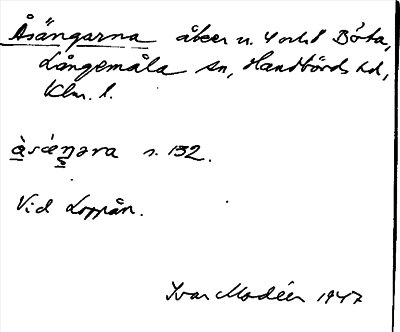 Åsängarna åker u. 4 och 8 Böta,
Långemåla sn, Handbörds hd,
Klm. l.
àsæ̀ŋəra s. 132.
Vid Loppån.
Ivar Modéer 1947